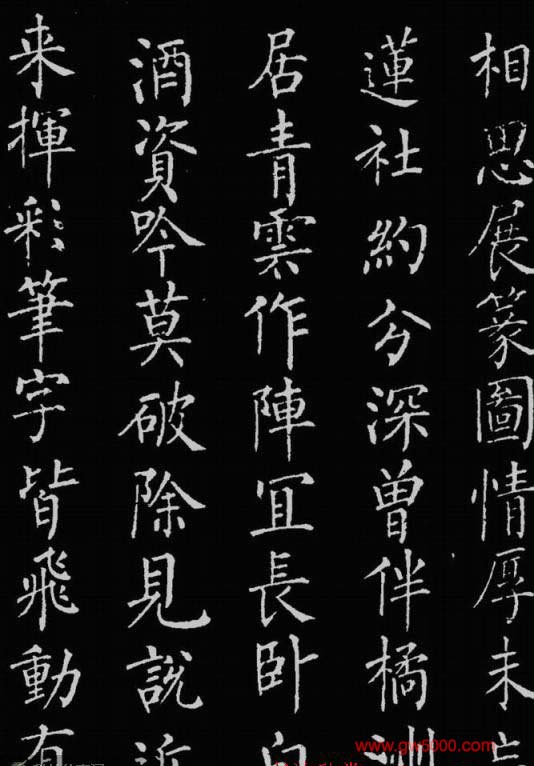 相思展篆圖情厚未忘
蓮社約分深曾伴橘洲
居青雲作陣宜長卧白
酒資吟莫破除見說近
来揮彩筆字皆飛動有
www.gw5000.com